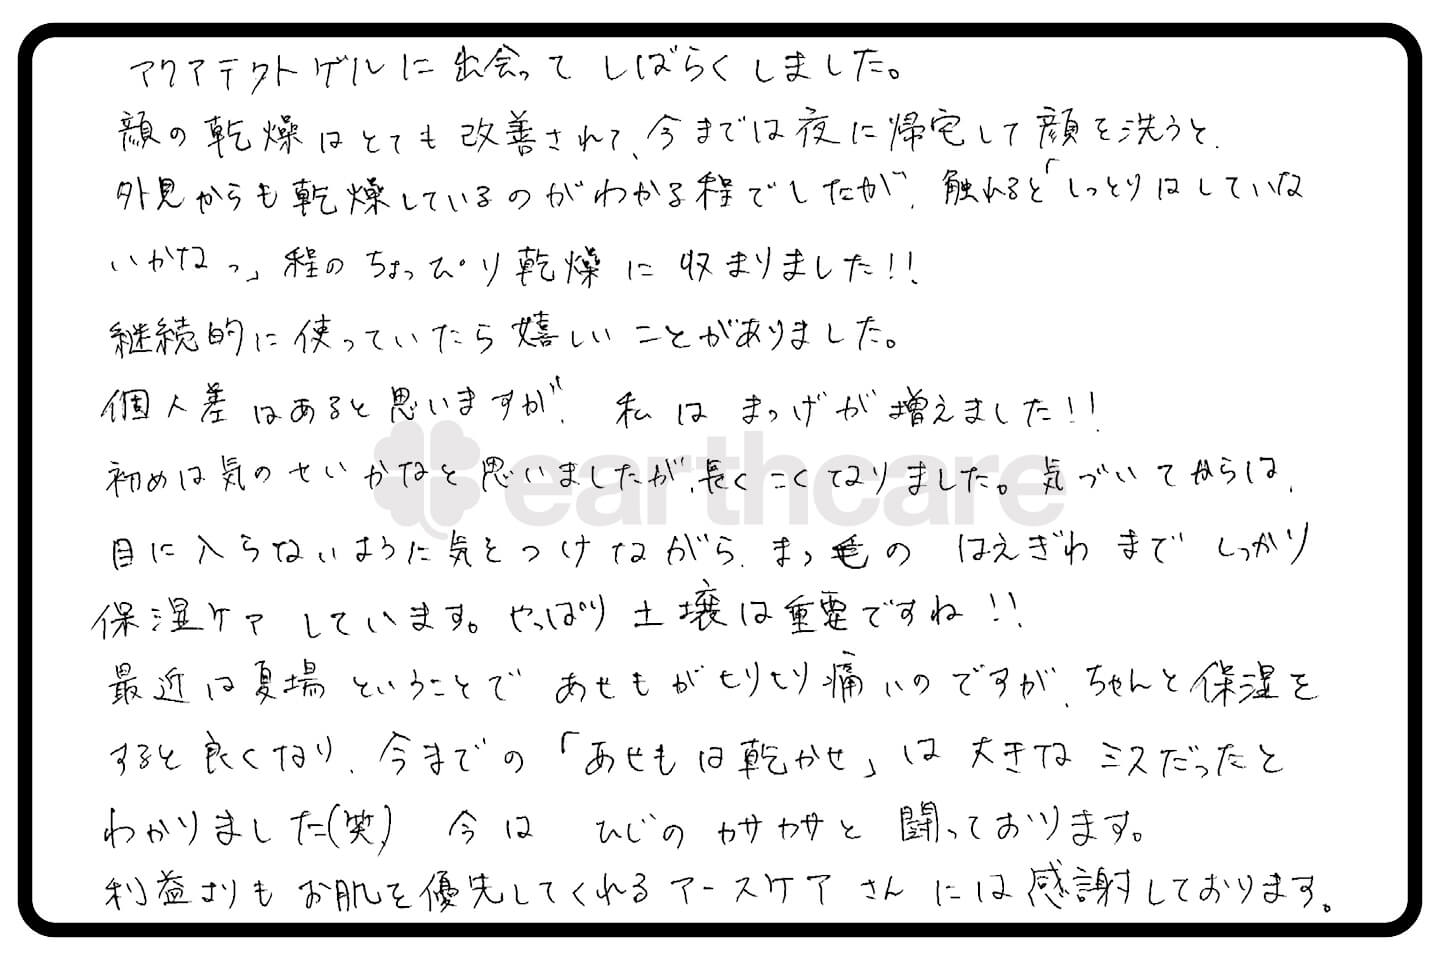 アクアテクトゲルに出会って しばらくしました。
顔の乾燥はとても改善されて、今までは夜に帰宅して顔を洗うと、
外見からも乾燥しているのがわかる程でしたが、触れると「しっとりはしていな
いかなっ」程のちょっぴり乾燥に収まりました!!
継続的に使っていたら嬉しいことがありました。
個人差はあると思いますが、私はまつげが増えました!!
初めは気のせいかなと思いましたが、長くこくなりました。気づいてからは、
目に入らないように気をつけながら、まつ毛の はえぎわまで しっかり
保湿ケア しています。やっぱり土壌は重要ですね!!
最近は夏場ということで あせもがヒリヒリ痛いのですが、ちゃんと保湿を
すると良くなり、今までの「あせもは乾かせ」は大きなミスだったと
わかりました(笑) 今は ひじのカサカサと闘っております。
利益よりもお肌を優先してくれるアースケアさんには感謝しております。
earthcare